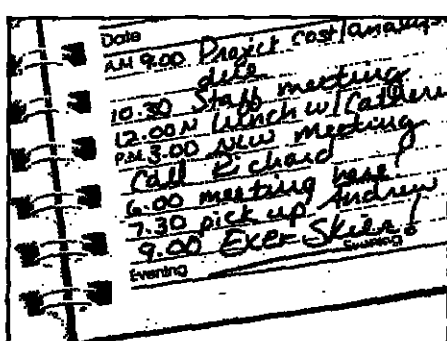 Date
AM 9.00 Project cost/analysis
due
10.30 Staff meeting
12.00 N Lunch w/
PM 3.00 New Meeting
Call Richard
6.00 meeting here!
7.30 pick up Andrew
9.00 EXER
Evening
Evening